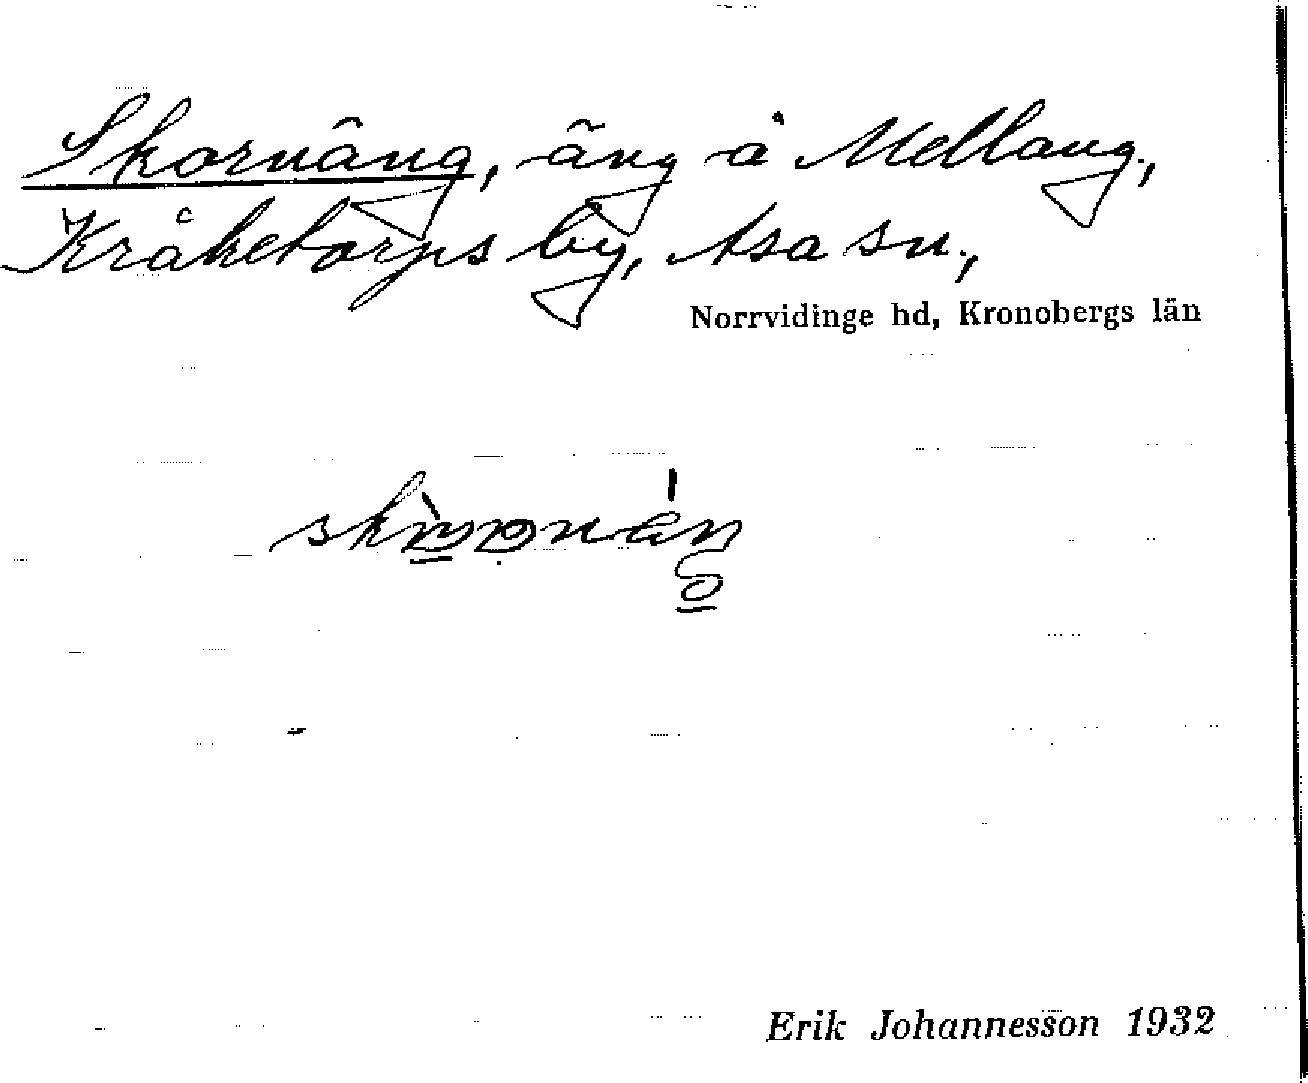 Skornäng, äng å Mellang.,
Kråketorps by, Asa sn.,
Norrvidinge hd, Kronobergs län
Erik Johannesson 1932